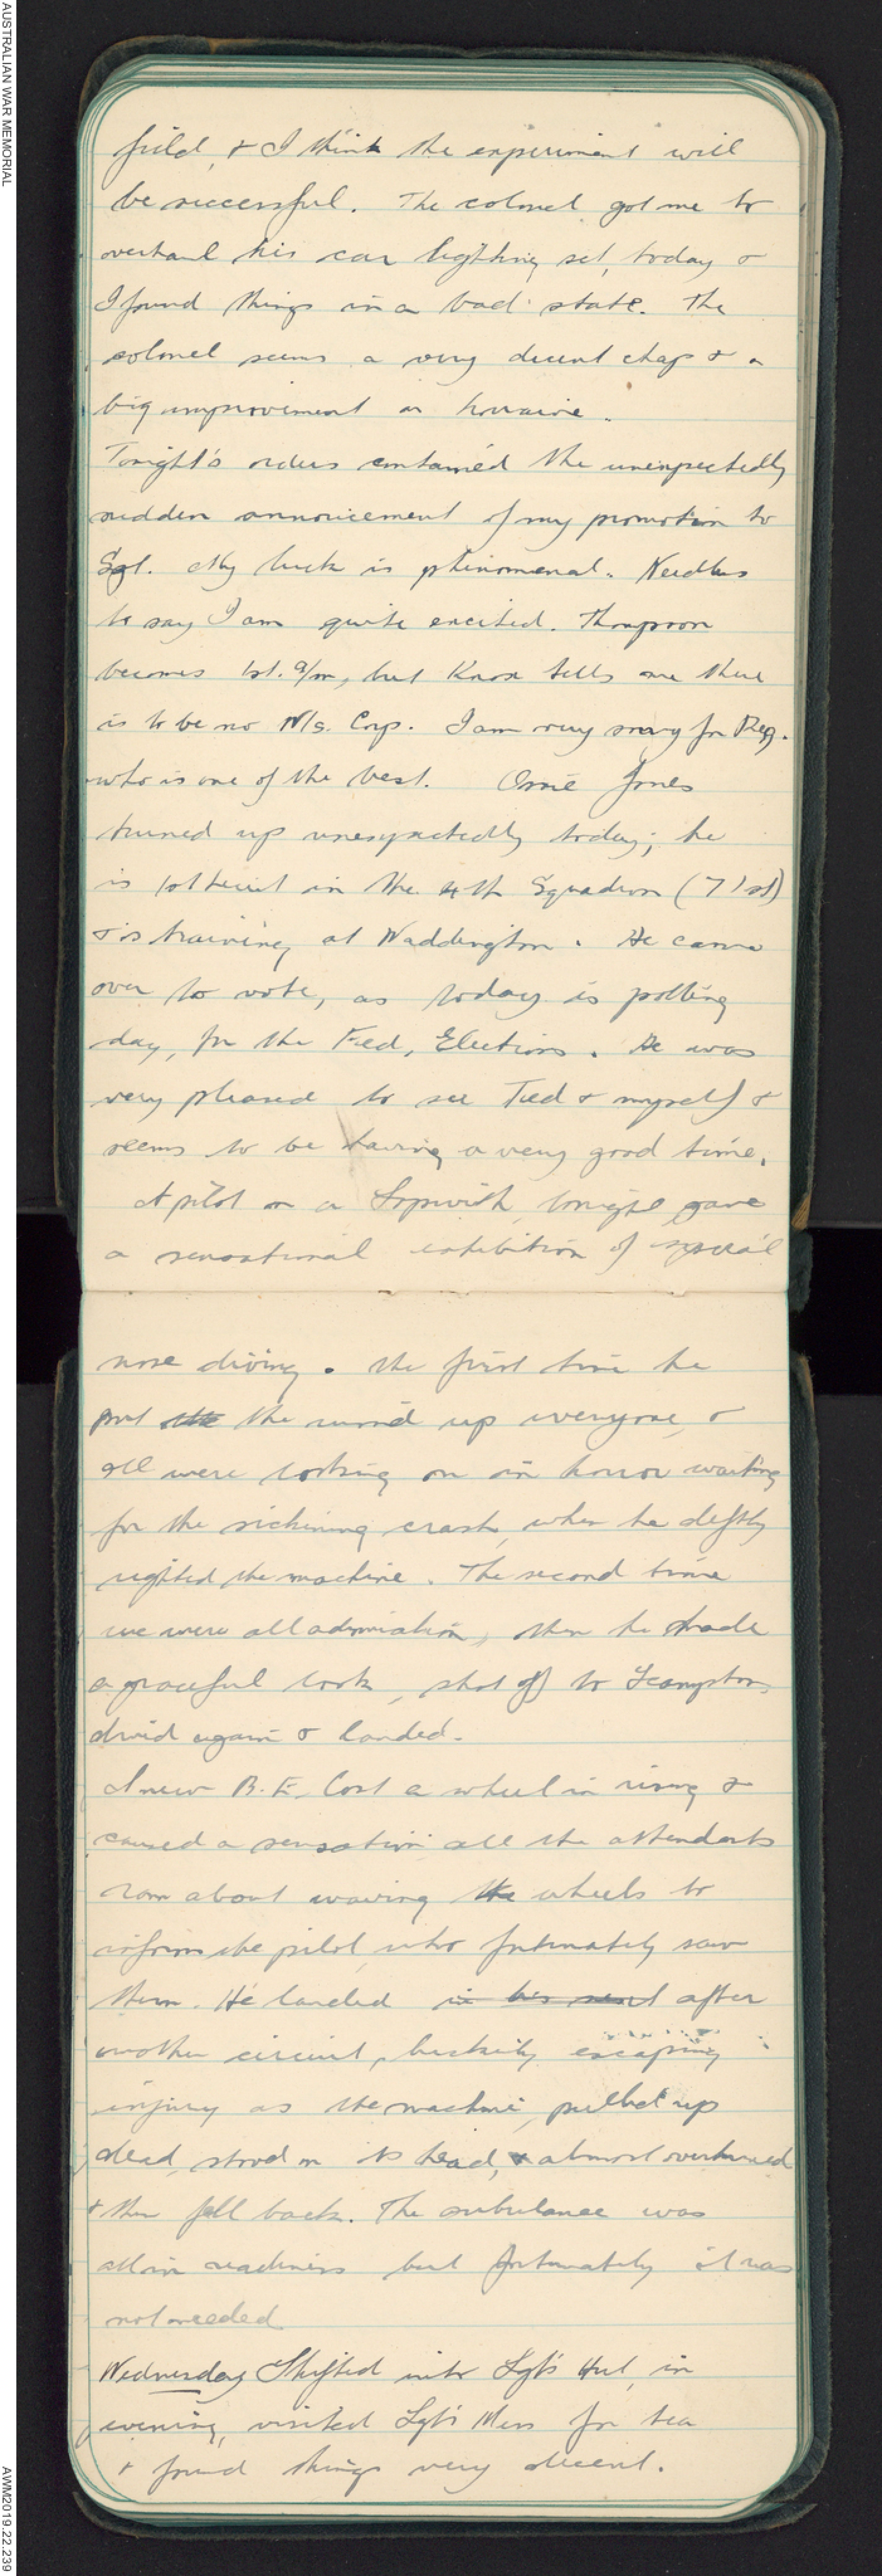 AUSTRALIAN WAR MEMORIAL
field, & I think the experiment will
be successful. The colonel got me to
overhaul his car lighting set, today &
I found things in a bad state. The
colonel seems a very decent chap & a
big improvement on
Tonight's orders contained the unexpectedly
sudden announcement of my promotion to
Sgt. My luck is phenomenal. Needless
to say I am quite excited. Thompson
becomes 1st. a/m, but Knox tells me there
is to be no W/s. Corp. I am very sorry for Reg.
who is one of the best. Ossie Jones
turned up unexpectedly today; he
is 1st Lieut in the 4th Squadron (71st)
& is training at Waddington. He came
over to vote, as today is polling
day, for the Fed, Elections. He was
very pleased to see Ted & myself &
seems to be having a very good time.
A pilot on a Sopwith, tonight gave
a sensational exhibition of special
nose diving. The first time he
put the the wind up everyone, &
all were looking on in horror waiting
for the sickening crash, when he deftly
righted the machine. The second time
we were all admiration, then he made
a graceful loop, shot off to Scampton,
dived again & landed.
A new B.E. lost a wheel in rising &
caused a sensation all the attendants
ran about waving the wheels to
inform the pilot, who fortunately saw
them. He landed in his after
another circuit, luckily escaping
injury as the machine, pulled up
dead, stood on its head, & almost overturned
& then fell back. The ambulance was
all in readiness but fortunately it was
not needed
Wednesday Shifted into Sgt's Hut, in
evening, visited Sgt's Mess for tea
& found things very decent.
AWM2019.22.239